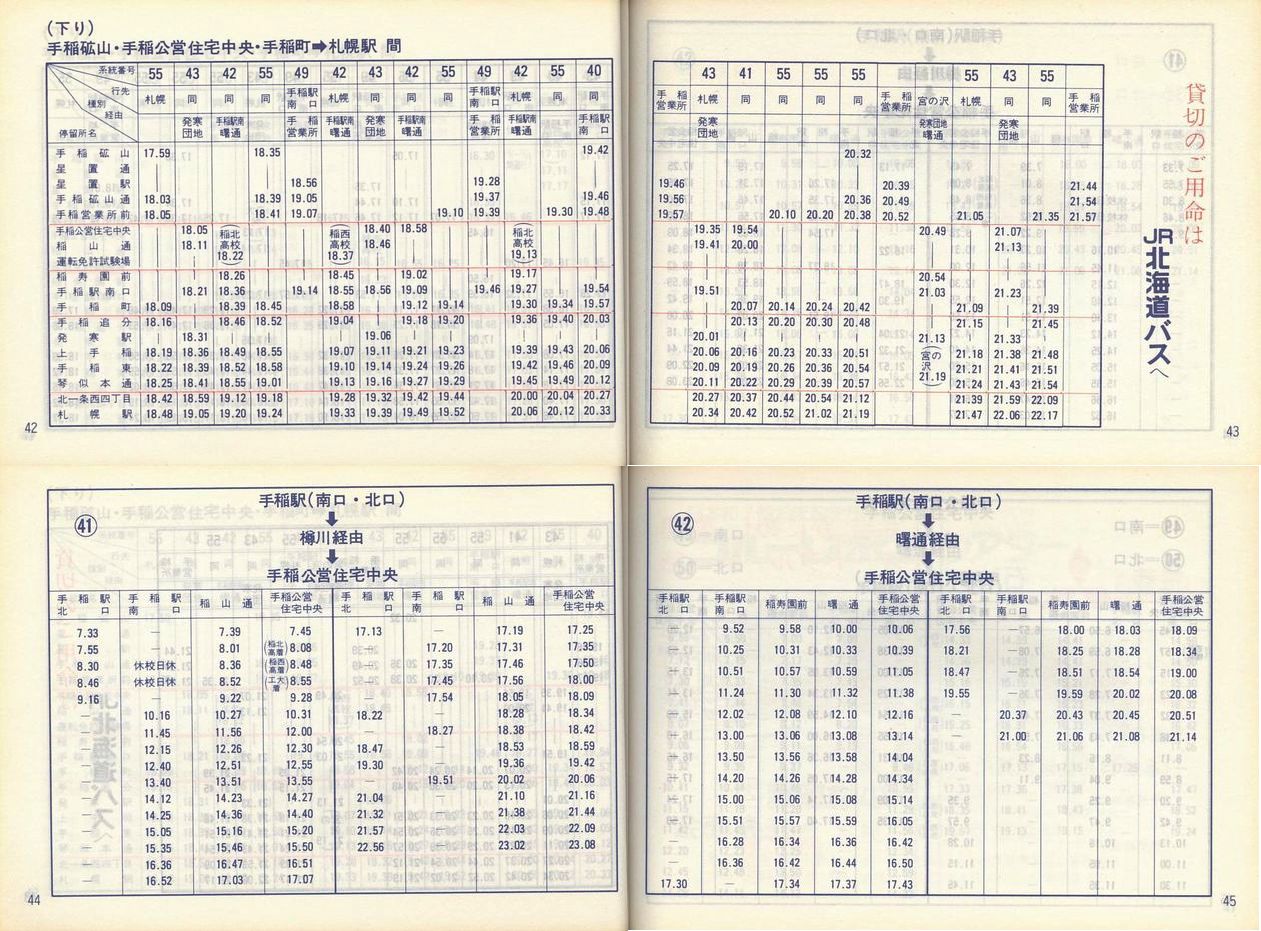 (下り)
手稲砿山・手稲公営住宅中央・手稲町➡札幌駅 間
系統番号 55 43 42 55 49 42 43 42 55 49 42 55 40
行先 札幌 同 同 同 手稲駅南口 札幌 同 同 同 手稲駅南口 札幌 同 同
種別
経由 発寒団地 手稲駅南曙通 手稲営業所 手稲駅南曙通 発寒団地 手稲駅南曙通 手稲営業所 手稲駅南曙通 手稲駅南口
停留所名
手稲砿山 17.59 18.35 19.42
星置通
星置駅 18.56 19.28
手稲砿山通 18.03 18.39 19.05 19.37 19.46
手稲営業所前 18.05 18.41 19.07 19.10 19.39 19.30 19.48
手稲公営住宅中央 18.05 (稲北 (稲西 18.40 18.58 (稲北
稲山通 18.11 高校 高校 18.46 高校
運転免許試験場 18.22) 18.37) 19.13)
稲寿園前 18.26 18.45 19.02 19.17
手稲駅南口 18.21 18.36 19.14 18.55 18.56 19.09 19.46 19.27 19.54
手稲町 18.09 18.39 18.45 18.58 19.12 19.14 19.30 19.34 19.57
手稲追分 18.16 18.46 18.52 19.04 19.18 19.20 19.36 19.40 20.03
発寒駅 18.31 19.06
上手稲 18.19 18.36 18.49 18.55 19.07 19.11 19.21 19.23 19.39 19.43 20.06
手稲東 18.22 18.39 18.52 18.58 19.10 19.14 19.24 19.26 19.42 19.46 20.09
琴似本通 18.25 18.41 18.55 19.01 19.13 19.16 19.27 19.29 19.45 19.49 20.12
北一条西四丁目 18.42 18.59 19.12 19.18 19.28 19.32 19.42 19.44 20.00 20.04 20.27
札幌駅 18.48 19.05 19.20 19.24 19.33 19.39 19.49 19.52 20.06 20.12 20.33
42
43 41 55 55 55 55 43 55
手稲営業所 札幌 同 同 同 同 手稲営業所 宮の沢 札幌 同 同 手稲営業所
発寒団地 発寒団地曙通 発寒団地
20.32
19.46 20.39 21.44
19.56 20.36 20.49 21.54
19.57 20.10 20.20 20.38 20.52 21.05 21.35 21.57
19.35 19.54 20.49 21.07
19.41 20.00 21.13
20.54
19.51 21.03 21.23
20.07 20.14 20.24 20.42 21.09 21.39
20.13 20.20 20.30 20.48 21.15 21.45
20.01 21.13 21.33
20.06 20.16 20.23 20.33 20.51 (宮の 21.18 21.38 21.48
20.09 20.19 20.26 20.36 20.54 沢 21.21 21.41 21.51
20.11 20.22 20.29 20.39 20.57 21.19) 21.24 21.43 21.54
20.27 20.37 20.44 20.54 21.12 21.39 21.59 22.09
20.34 20.42 20.52 21.02 21.19 21.47 22.06 22.17
貸切のご用命は
JR北海道バスへ
43
㊶
手稲駅(南口・北口)
⬇
樽川経由
⬇
手稲公営住宅中央
手稲駅北口 手稲駅南口 稲山通 手稲公営住宅中央 手稲駅北口 手稲駅南口 稲山通 手稲公営住宅中央
7.33 — 7.39 7.45 17.13 — 17.19 17.25
7.55 — 8.01 (稲北高着)8.08 — 17.20 17.31 17.35
8.30 休校日休 8.36 (稲西高着)8.48 — 17.35 17.46 17.50
8.46 休校日休 8.52 (工大着)8.55 — 17.45 17.56 18.00
9.16 — 9.22 9.28 — 17.54 18.05 18.09
— 10.16 10.27 10.31 18.22 — 18.28 18.34
— 11.45 11.56 12.00 — 18.27 18.38 18.42
— 12.15 12.26 12.30 18.47 — 18.53 18.59
— 12.40 12.51 12.55 19.30 — 19.36 19.42
— 13.40 13.51 13.55 — 19.51 20.02 20.06
— 14.12 14.23 14.27 21.04 — 21.10 21.16
— 14.25 14.36 14.40 21.32 — 21.38 21.44
— 15.05 15.16 15.20 21.57 — 22.03 22.09
— 15.35 15.46 15.50 22.56 — 23.02 23.08
— 16.36 16.47 16.51
— 16.52 17.03 17.07
44
㊷
手稲駅(南口・北口)
⬇
曙通経由
⬇
手稲公営住宅中央
手稲駅北口 手稲駅南口 稲寿園前 曙通 手稲公営住宅中央 手稲駅北口 手稲駅南口 稲寿園前 曙通 手稲公営住宅中央
— 9.52 9.58 10.00 10.06 17.56 — 18.00 18.03 18.09
— 10.25 10.31 10.33 10.39 18.21 — 18.25 18.28 18.34
— 10.51 10.57 10.59 11.05 18.47 — 18.51 18.54 19.00
— 11.24 11.30 11.32 11.38 19.55 — 19.59 20.02 20.08
— 12.02 12.08 12.10 12.16 — 20.37 20.43 20.45 20.51
— 13.00 13.06 13.08 13.14 — 21.00 21.06 21.08 21.14
— 13.50 13.56 13.58 14.04
— 14.20 14.26 14.28 14.34
— 15.00 15.06 15.08 15.14
— 15.51 15.57 15.59 16.05
— 16.28 16.34 16.36 16.42
— 16.36 16.42 16.44 16.50
17.30 — 17.34 17.37 17.43
45